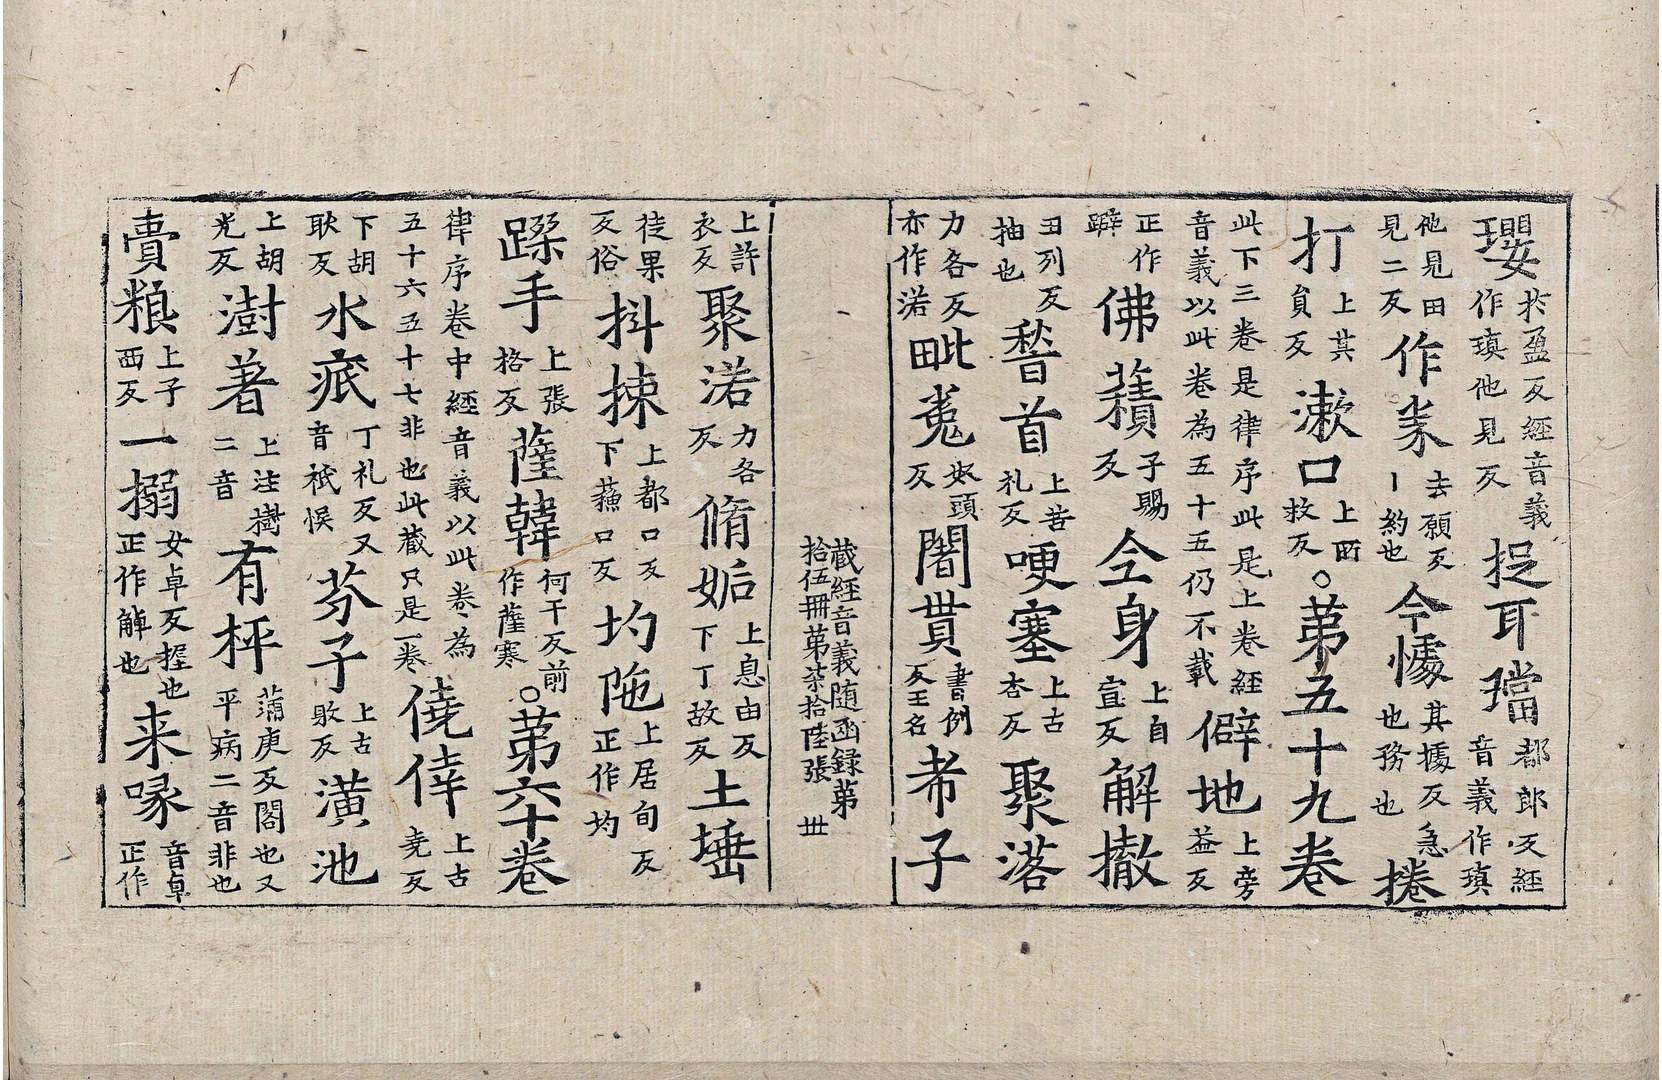 瓔於盈反經音義作瑱他見反捉耳璫都郎反經音義作瑱
他見田見二反作桊去願反丨約也今懅其據反急也務也捲
打上其負反漱口上所救反○第五十九卷
此下三卷是律序此是上卷經音義以此卷為五十五仍不載僻地上旁益反
正作躃佛𧂐子賜反仝身上自宣反解撤
丑列反抽也𥡴首上苦礼反哽塞上古杏反聚落
力各反亦作㳣毗㝹奴頭反闍貰書例反王名希子
藏經音義随函録第拾伍冊第柒拾陸張 丗
上許衣反聚㳣力各反脩姤上息由反下丁故反土埵
徒果反俗抖揀上都口反下蘓口反圴陁上居旬反正作均
蹂手上張格反薩韓何干反前作薩寒○第六十卷
律序卷中經音義以此卷為五十六五十七非也此藏只是一卷僥倖上古堯反
下胡耿反水疷丁礼反又音祇悮芬子上古敗反潢池
上胡光反澍著上注樹二音有枰蒲庚反閣也又平病二音非也
賷粮上子西反一搦女卓反握也正作觲也来㖨音卓正作